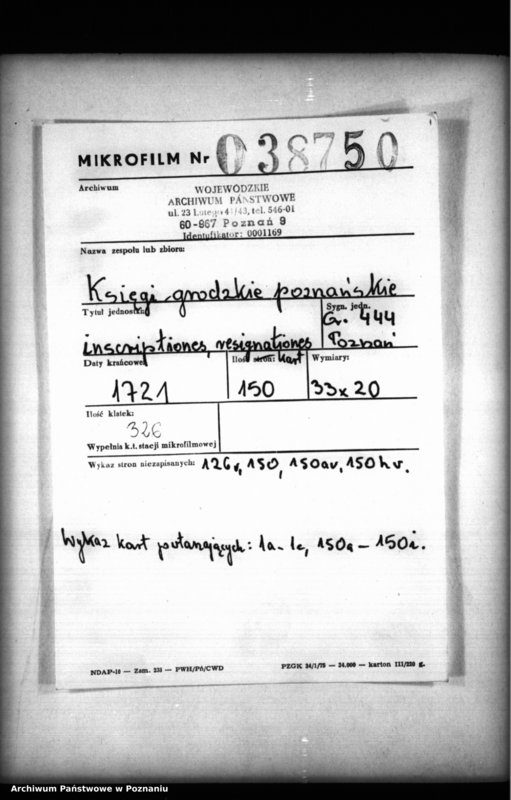 MIKROFILM Nr 038750
Archiwum
WOJEWÓDZKIE
ARCHIWUM PAŃSTWOWE
ul. 23 Lutego 41/43, tel. 546-01
60-967 Poznań 9
Identyfikator: 0001169
Nazwa zespołu lub zbioru:
Księgi grodzkie poznańskie
Tytuł jednostki:
inscriptiones, resignationes
Sygn. jedn.
Gr. 444
Poznań
Daty krańcowe
1721
Ilość stron: kart
150
Wymiary:
33 x 20
Ilość klatek:
326
Wypełnia k.t. stacji mikrofilmowej
Wykaz stron niezapisanych: 126v, 150, 150av, 150hv.
Wykaz kart powtarzających: 1a - 1c, 150a - 150i.
NDAP-10 — Zam. 233 — PWH/Pń/CWD
PZGK 24/1/75 — 24.000 — karton III/220 g.
Archiwum Państwowe w Poznaniu